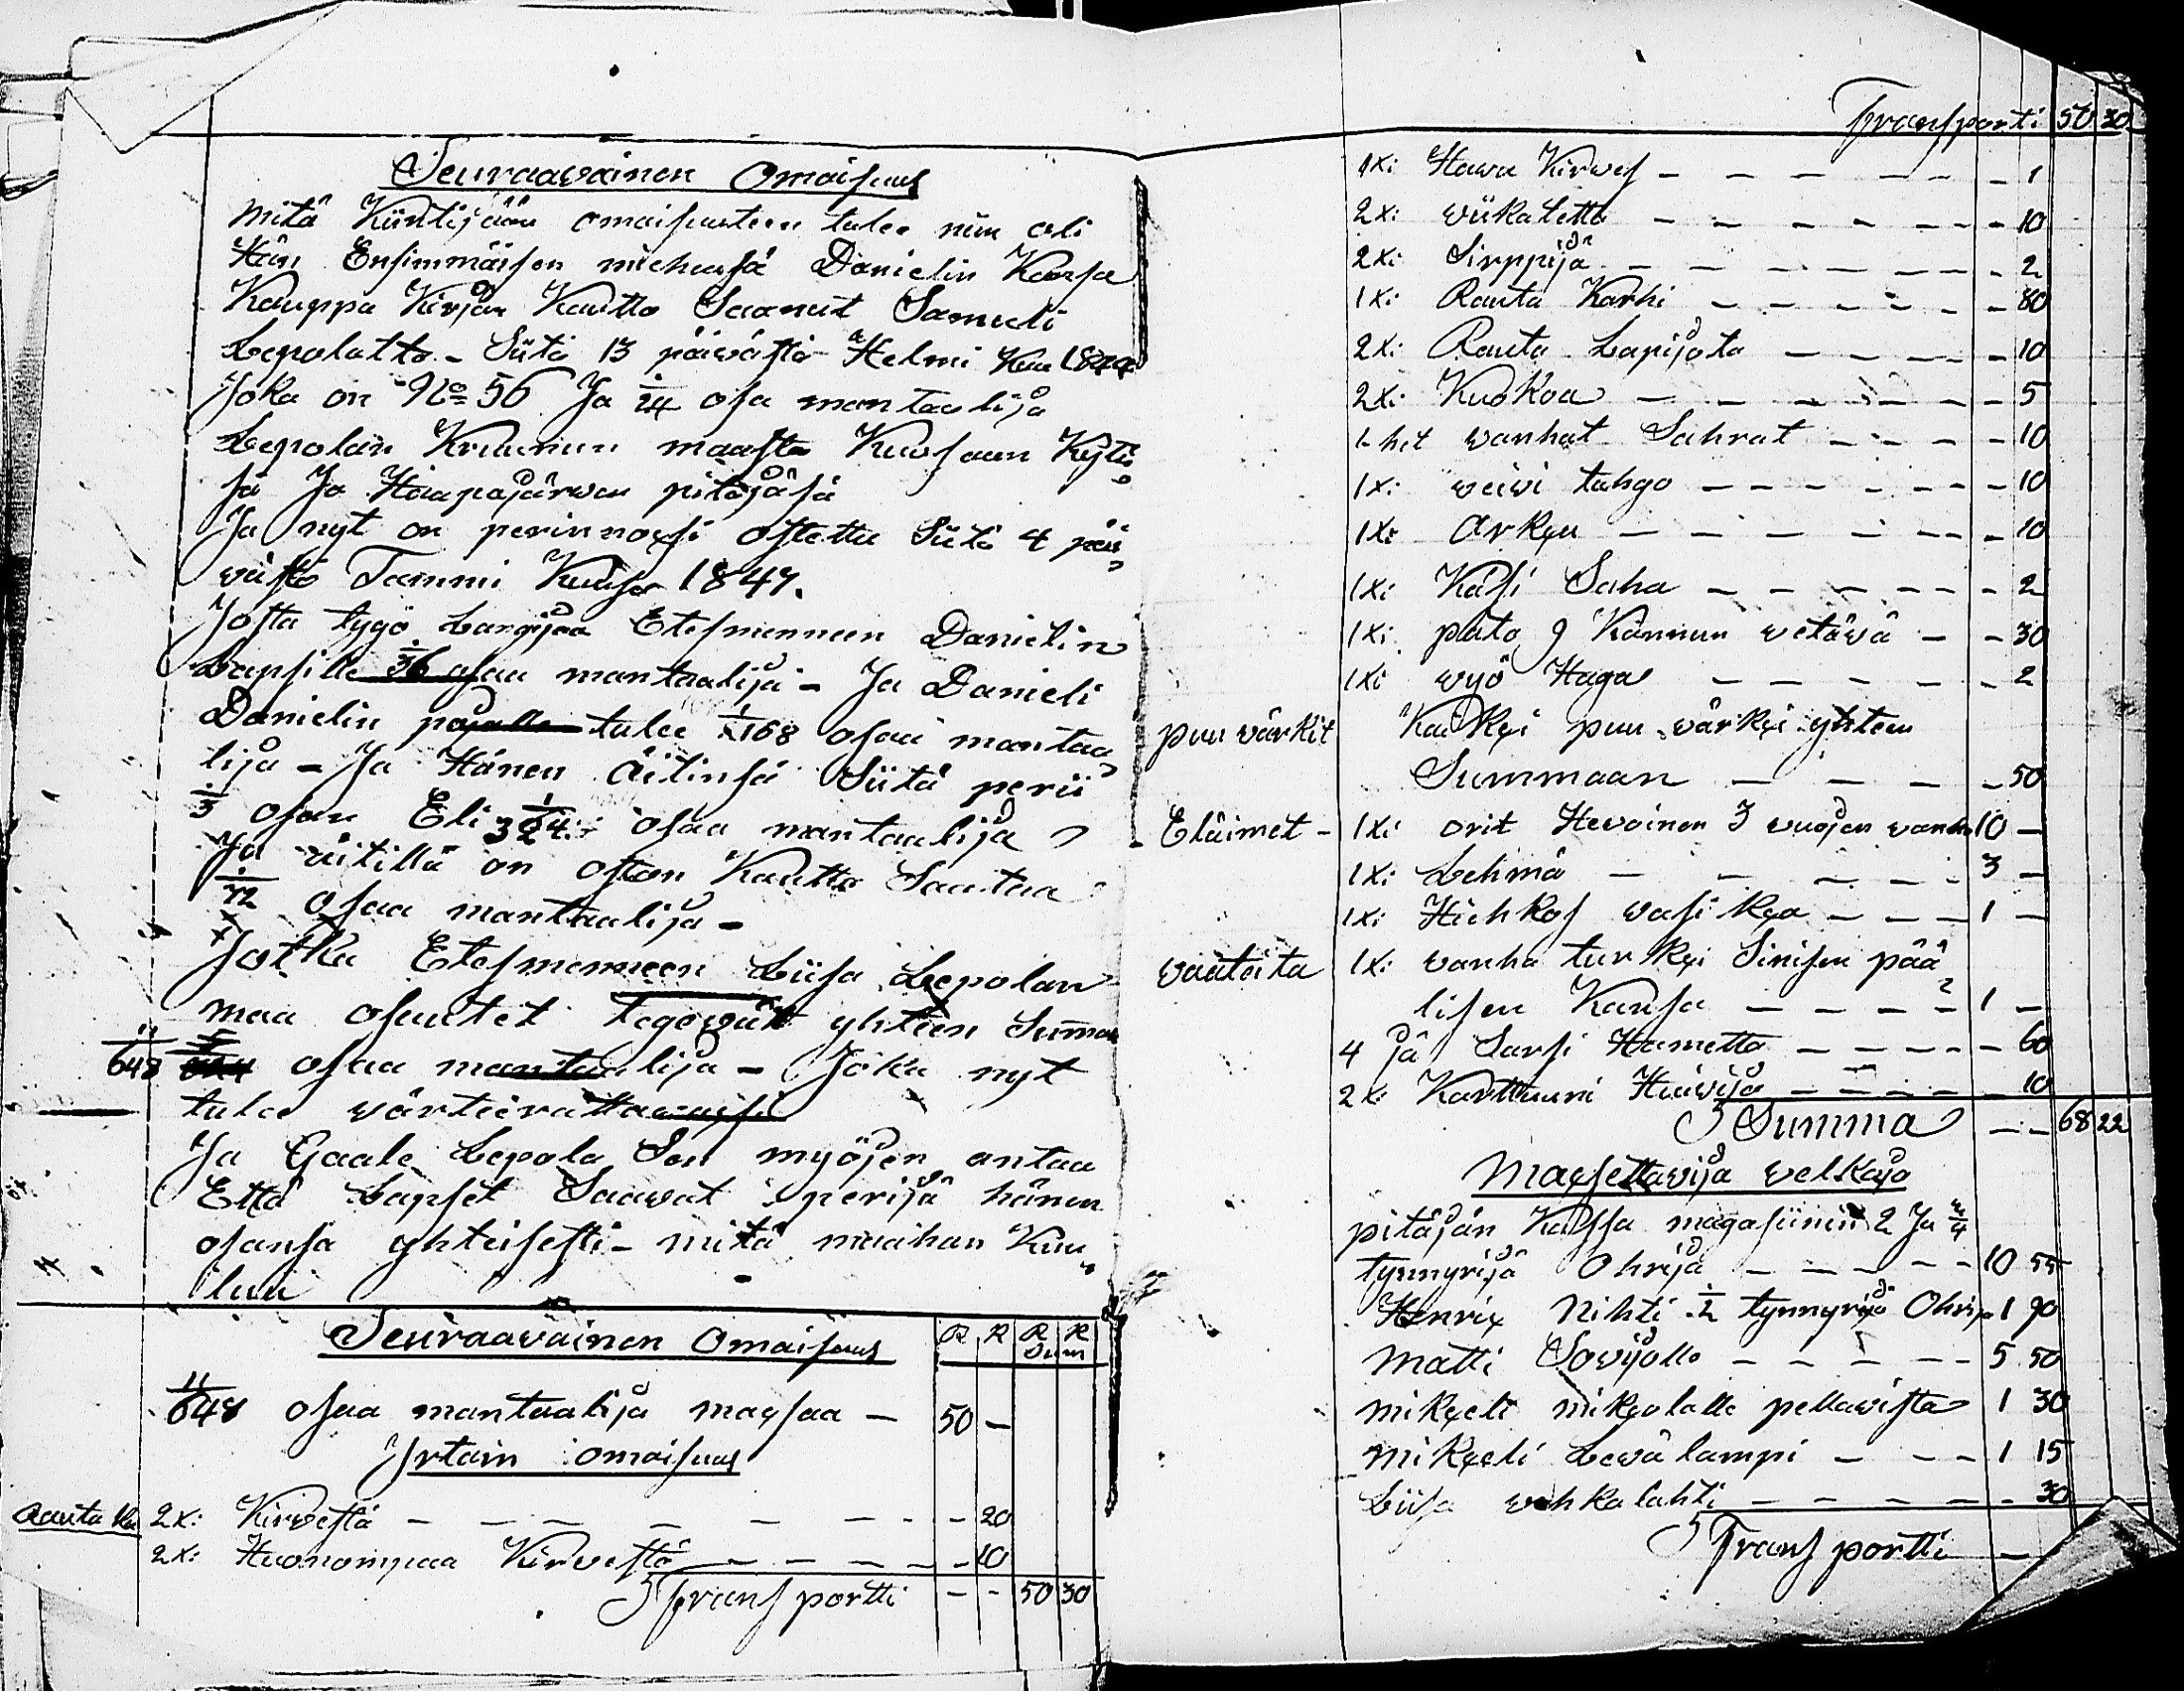 Seuraawainen Omaisuus
mitä Kiintijään omaisuuteen tulee niin oli
Hän Ensimmäisen miehensä Danielin Kansa
Kauppa Kirjan Kautta Saanut Samueli
Lepolalta - Siitä 13 päiwästä Helmi Kuu
Joka on No 56 Ja 1/24 osa mantaalija
Lepolan Kruunun maasta Kuusaan Kylä
sä Ja Haapajärwen pitäjäsä
Ja nyt on perinnoxsi ostettu Siitä 4 päi
wästä Tammi Kuusa 1847.
Josta tygö Langijaa Etesmenneen Danielin
Lapsille 1/36 osaa mantaalija - Ja Danieli
Danielin pojalle tulee 1/168 osaa mantaa
lija - Ja Hänen Äitinsä Siitä perii
1/3 osan Eli 1/324: osaa mantaalija
Ja äitillä on oston Kautta Saatua
1/72 osaa mantaalija -
Jotka Etesmenneen Liisa Lepolan
maa osuutet tegewät yhteen Summan
11/648 osaa mantaalija - Joka nyt
tulee wärteerattawaisi
Ja Gaale Lepola Sen myöjen antaa
Että Lapset Saawat perijä hänen
osansa yhteisesti - mitä maahan Kuu
luu
Seuraawainen Omaisuus R K R K Sum
11/648 osaa mantaalija maxsaa - 50 -
Irtain omaisuus
Rauta Ka 2x: Kirwestä - - - - - 20
2x: Huonompaa Kirwestä - - - - 10
Transportti - - 50 30
Transporti 50 30
1x: Hawu Kirwes - - - - - 1
2x: wiikatetta - - - - - 10
2x: Sirppijä - - - - - 2
1x: Rauta Karhi - - - - - 80
2x: Rauta Lapijota - - - - 10
2x: Kuokoa - - - - - 5
1-het wanhat Sahrat - - - - 10
1x: weiwi tahgo - - - - - 10
1x: Arkku - - - - - 10
1x: Käsi Saha - - - - - 2
1x: pato 9 Kannun wetäwä - - 30
1x: wyö Haga - - - - - 2
puu wärkit Kaikki puu wärkit yhteen
Summaan - - - - 50
Eläimet - 1x: orit Hewoinen 3 wuojen wanha 10 -
1x: Lehmä - - - - - 3 -
1x: Hiehkos wasikka - - - 1 -
waateita 1x: wanha turkki Sinisen pää
lisen Kansa - - - - 1 -
4 jä Sarsi Hametta - - - - 60
2x: Karttuuni Huiwija - - - - 10
Summa - - 68 22
Maxsettawija welkoja
pitäjän Kassa magasiiniin 2 Ja 3/4
tynnyrijä Ohrija - - - - 10 55
Henrix Nihti 1/2 tynnyrijä Ohrija 1 90
Matti Sowijolle - - - - 5 50
mikkeli mikkolalle pellawista 1 30
Mikkeli Lewälampi - - - 1 15
Liisa wehkalahti - - - - 30
Transportti -